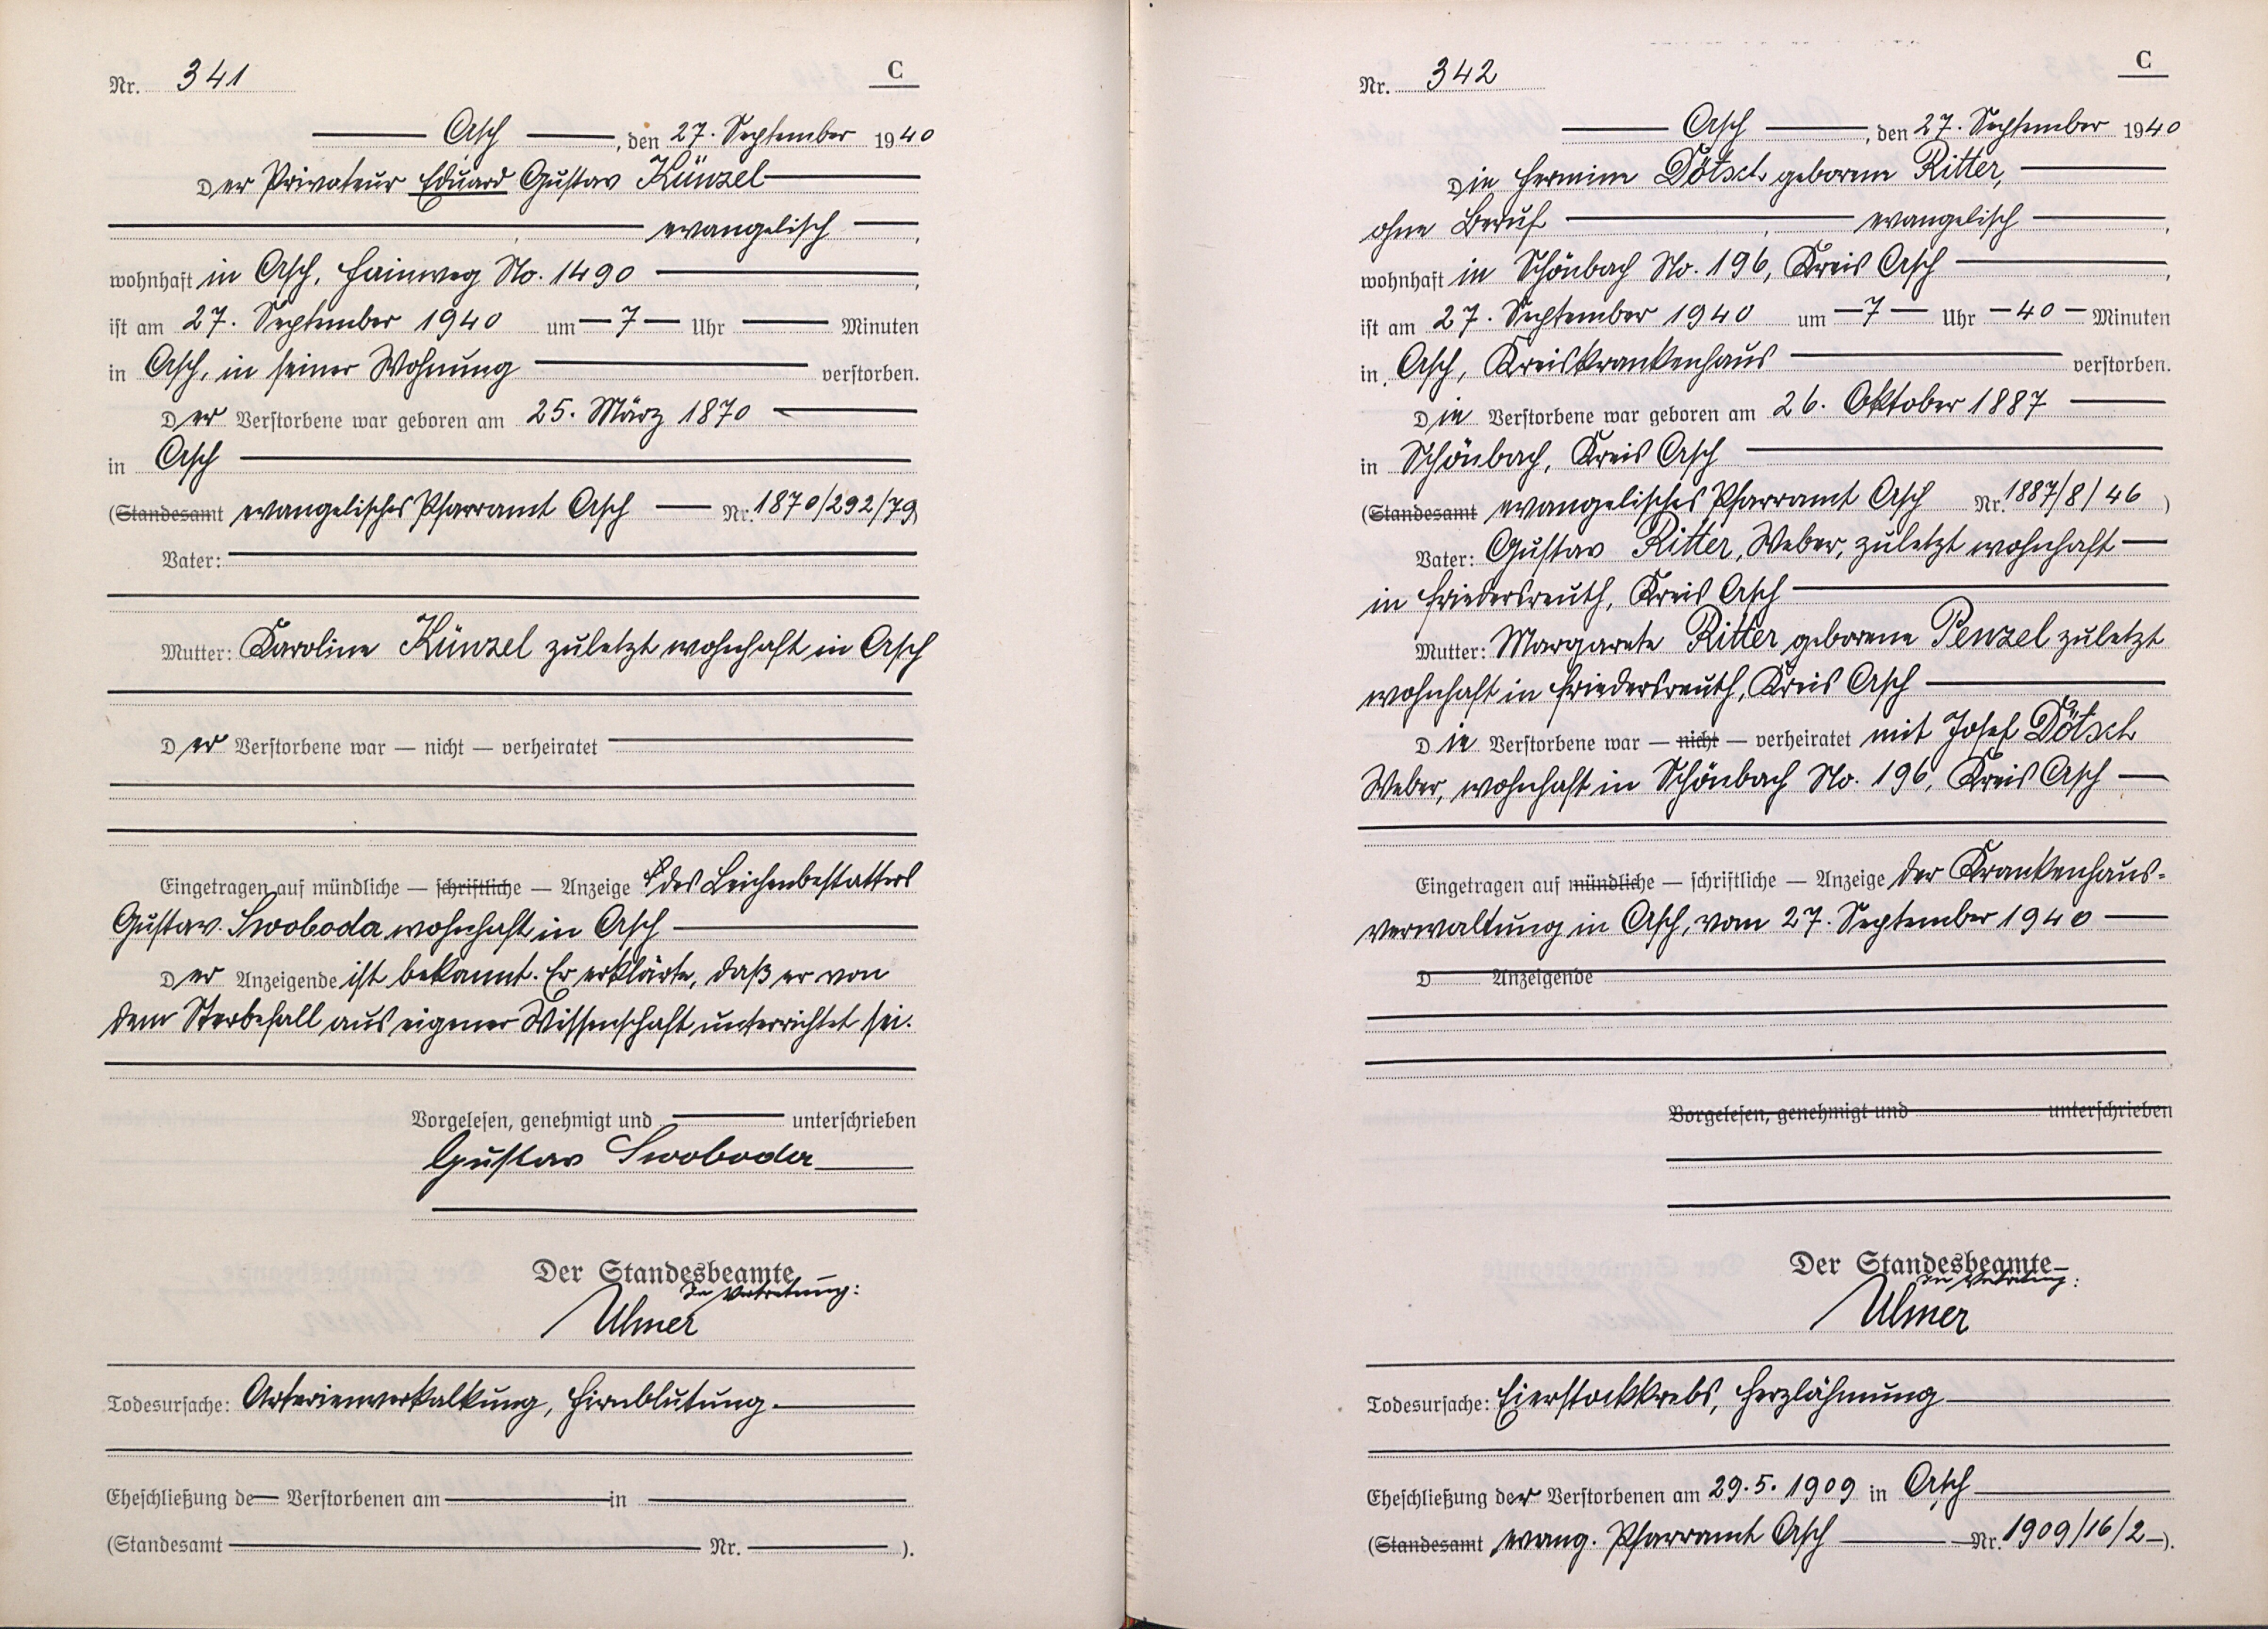 Nr. 341
C
Asch, den 27. September 1940
Der Privateur Eduard Gustav Künzel
evangelisch,
wohnhaft in Asch, Hainweg No. 1490,
ist am 27. September 1940 um 7 Uhr Minuten
in Asch, in seiner Wohnung verstorben.
Der Verstorbene war geboren am 25. März 1870
in Asch
(Standesamt evangelisches Pfarramt Asch Nr. 1870/292/79)
Vater:
Mutter: Karoline Künzel zuletzt wohnhaft in Asch
Der Verstorbene war — nicht — verheiratet
Eingetragen auf mündliche — schriftliche — Anzeige des Leichenbestatters
Gustav Swoboda wohnhaft in Asch
Der Anzeigende ist bekannt. Er erklärte, daß er von
dem Sterbefall aus eigener Wissenschaft unterrichtet sei.
Vorgelesen, genehmigt und unterschrieben
Gustav Swoboda
Der Standesbeamte
In Vertretung:
Ulmer
Todesursache: Arterienverkalkung, Hirnblutung.
Eheschließung de Verstorbenen am in
(Standesamt Nr. ).
Nr. 342
C
Asch, den 27. September 1940
Die Hermine Dötsch geborene Ritter,
ohne Beruf, evangelisch,
wohnhaft in Schönbach No. 196, Kreis Asch,
ist am 27. September 1940 um 7 Uhr 40 Minuten
in Asch, Kreiskrankenhaus verstorben.
Die Verstorbene war geboren am 26. Oktober 1887
in Schönbach, Kreis Asch
(Standesamt evangelisches Pfarramt Asch Nr. 1887/8/46)
Vater: Gustav Ritter, Weber, zuletzt wohnhaft
in Friedersreuth, Kreis Asch
Mutter: Margarete Ritter geborene Penzel zuletzt
wohnhaft in Friedersreuth, Kreis Asch
Die Verstorbene war — nicht — verheiratet mit Josef Dötsch
Weber, wohnhaft in Schönbach No. 196, Kreis Asch
Eingetragen auf mündliche — schriftliche — Anzeige der Krankenhaus-
verwaltung in Asch, vom 27. September 1940
D Anzeigende
Vorgelesen, genehmigt und unterschrieben
Der Standesbeamte
In Vertretung:
Ulmer
Todesursache: Eierstockkrebs, Herzlähmung
Eheschließung der Verstorbenen am 29.5.1909 in Asch
(Standesamt evang. Pfarramt Asch Nr. 1909/16/2).